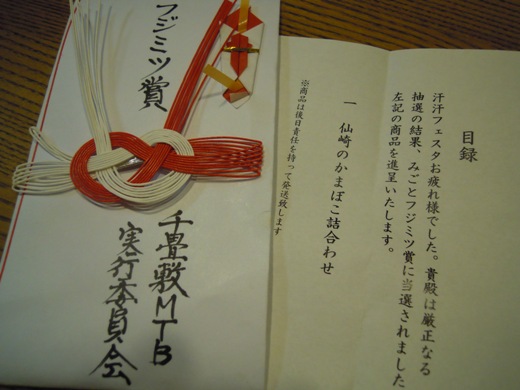 フジミツ賞
千畳敷MTB
実行委員会
目録
汗汗フェスタお疲れ様でした。貴殿は厳正なる
抽選の結果、みごとフジミツ賞に当選されました
左記の商品を進呈いたします。
一 仙崎のかまぼこ詰合わせ
※商品は後日責任を持って発送致します